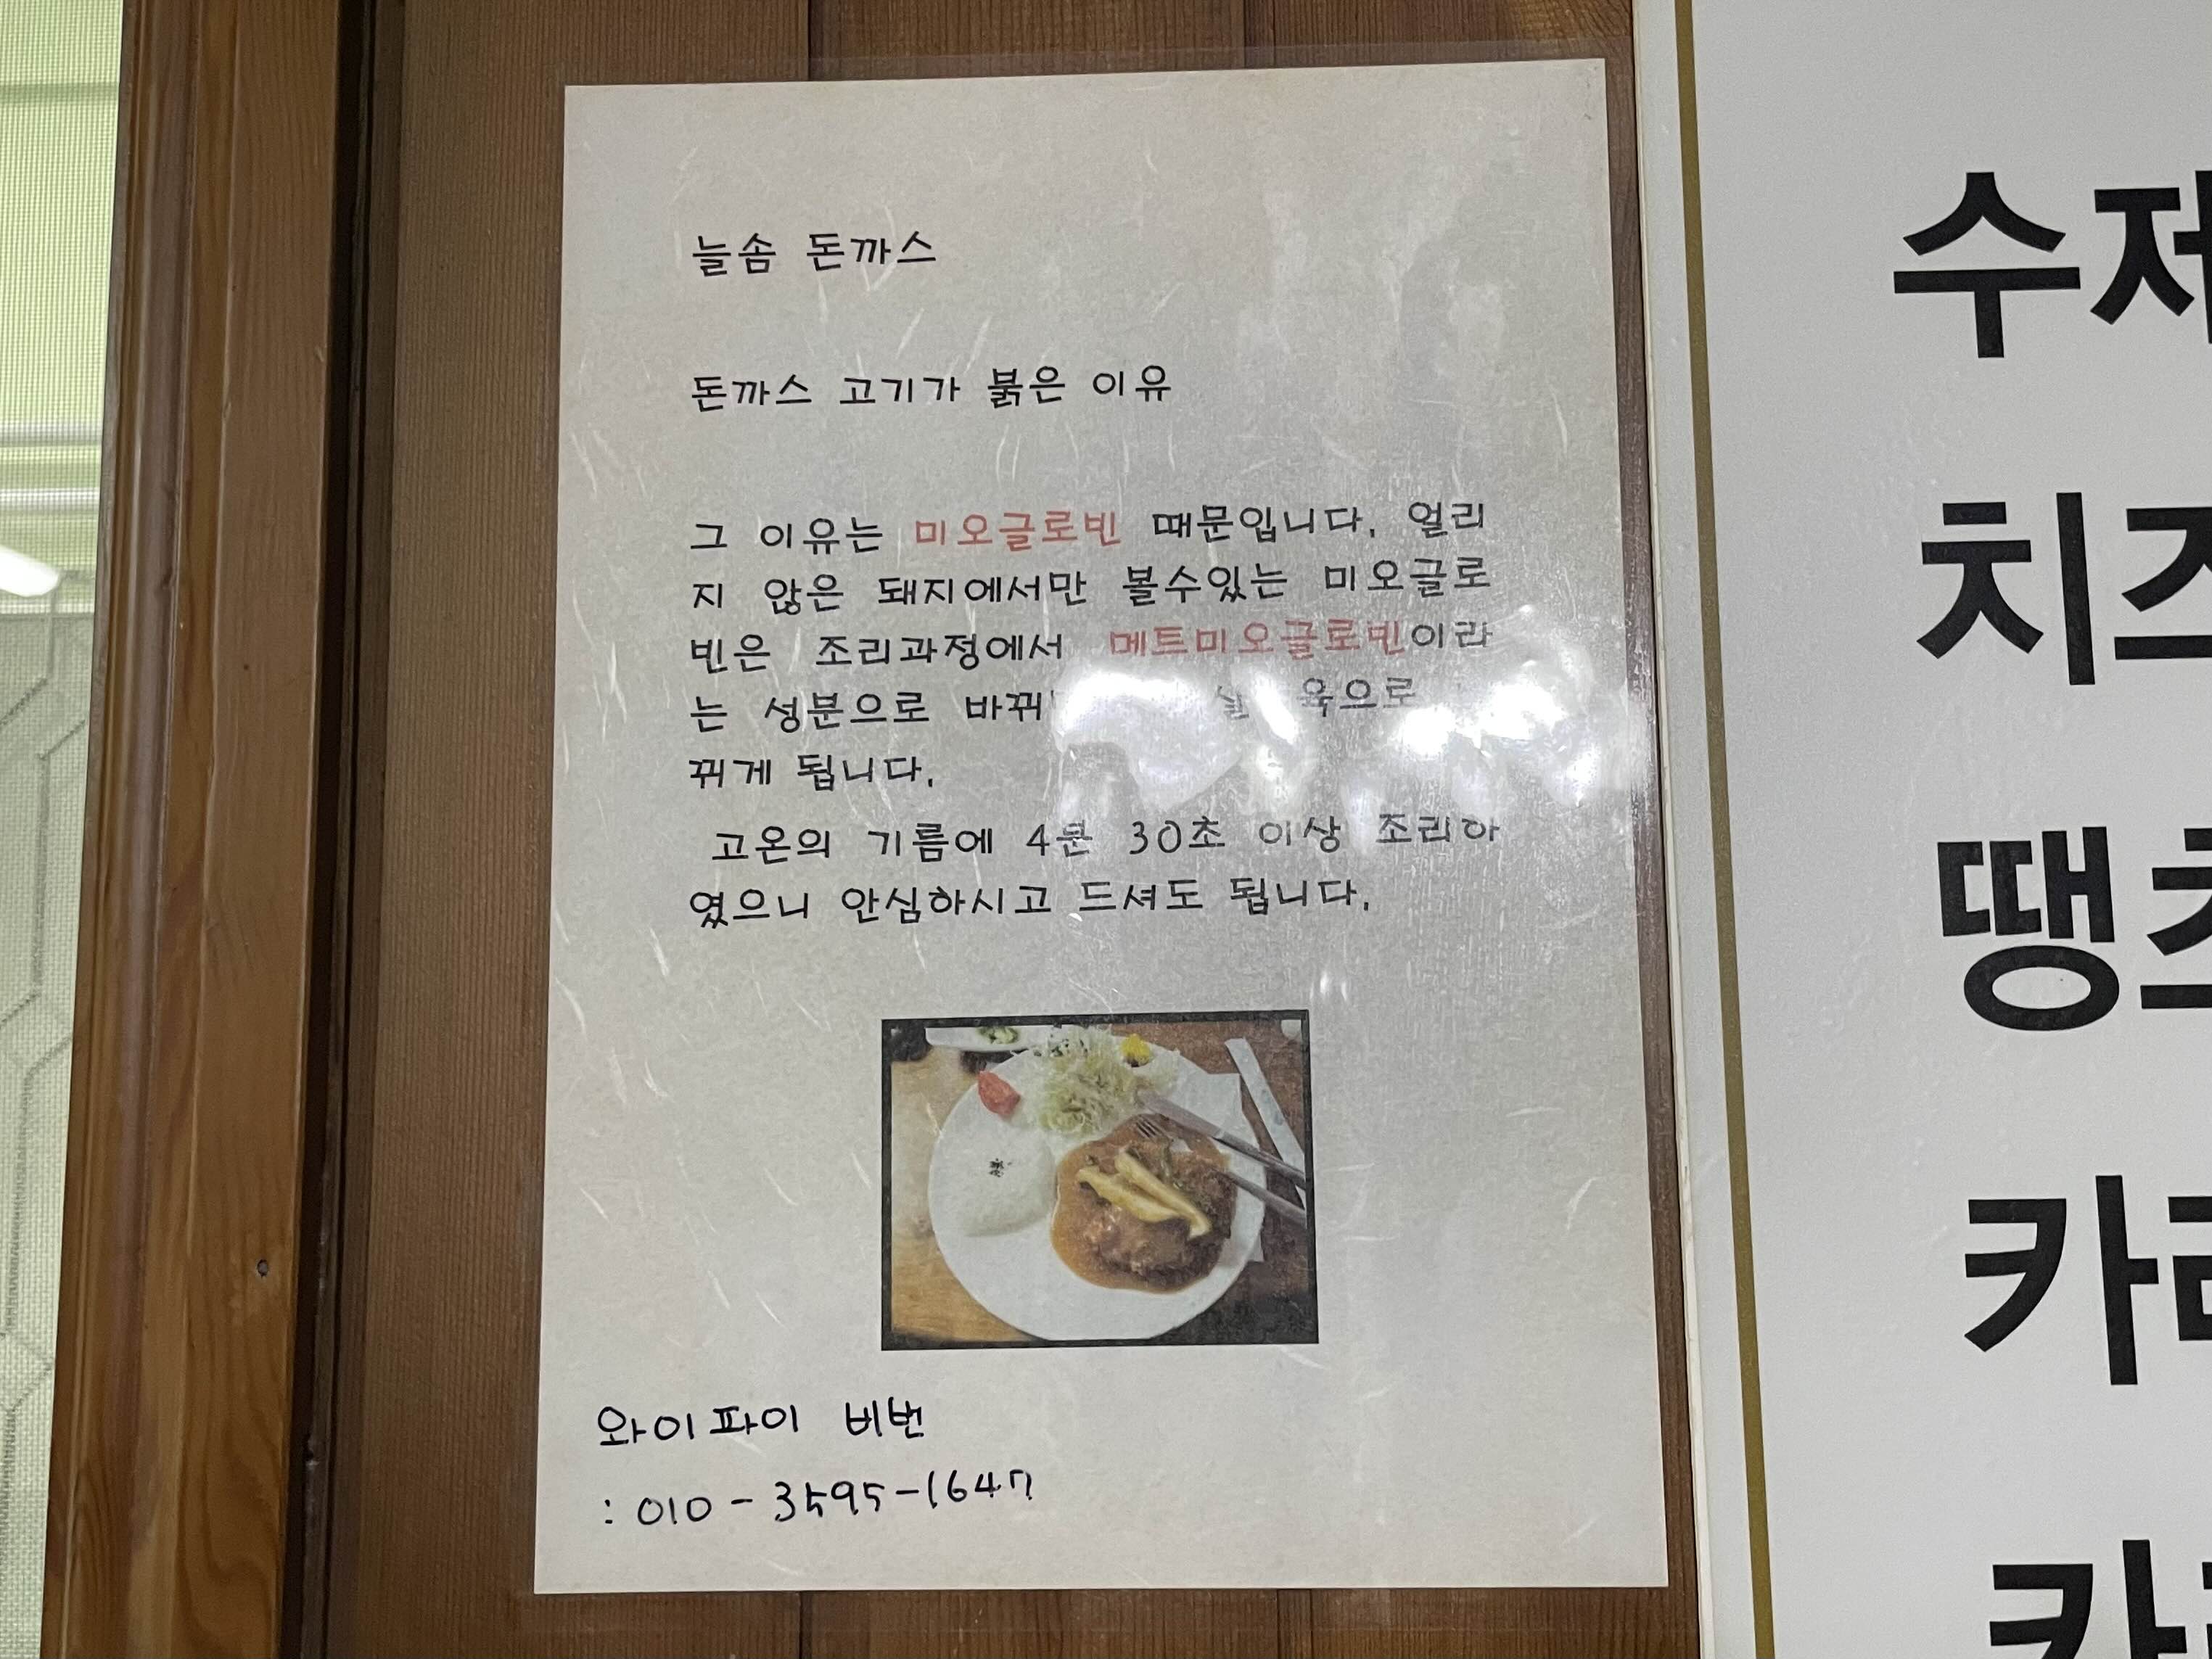 늘솜 돈까스
돈까스 고기가 붉은 이유
그 이유는 미오글로빈 때문입니다. 얼리
지 않은 돼지에서만 볼수있는 미오글로
빈은 조리과정에서 메트미오글로빈이라
는 성분으로
뀌게 됩니다.
고온의 기름에 4분 30초 이상 조리하
였으니 안심하시고 드셔도 됩니다.
와이파이 비번
: 010-3595-1647
수제
치즈
땡초
카레